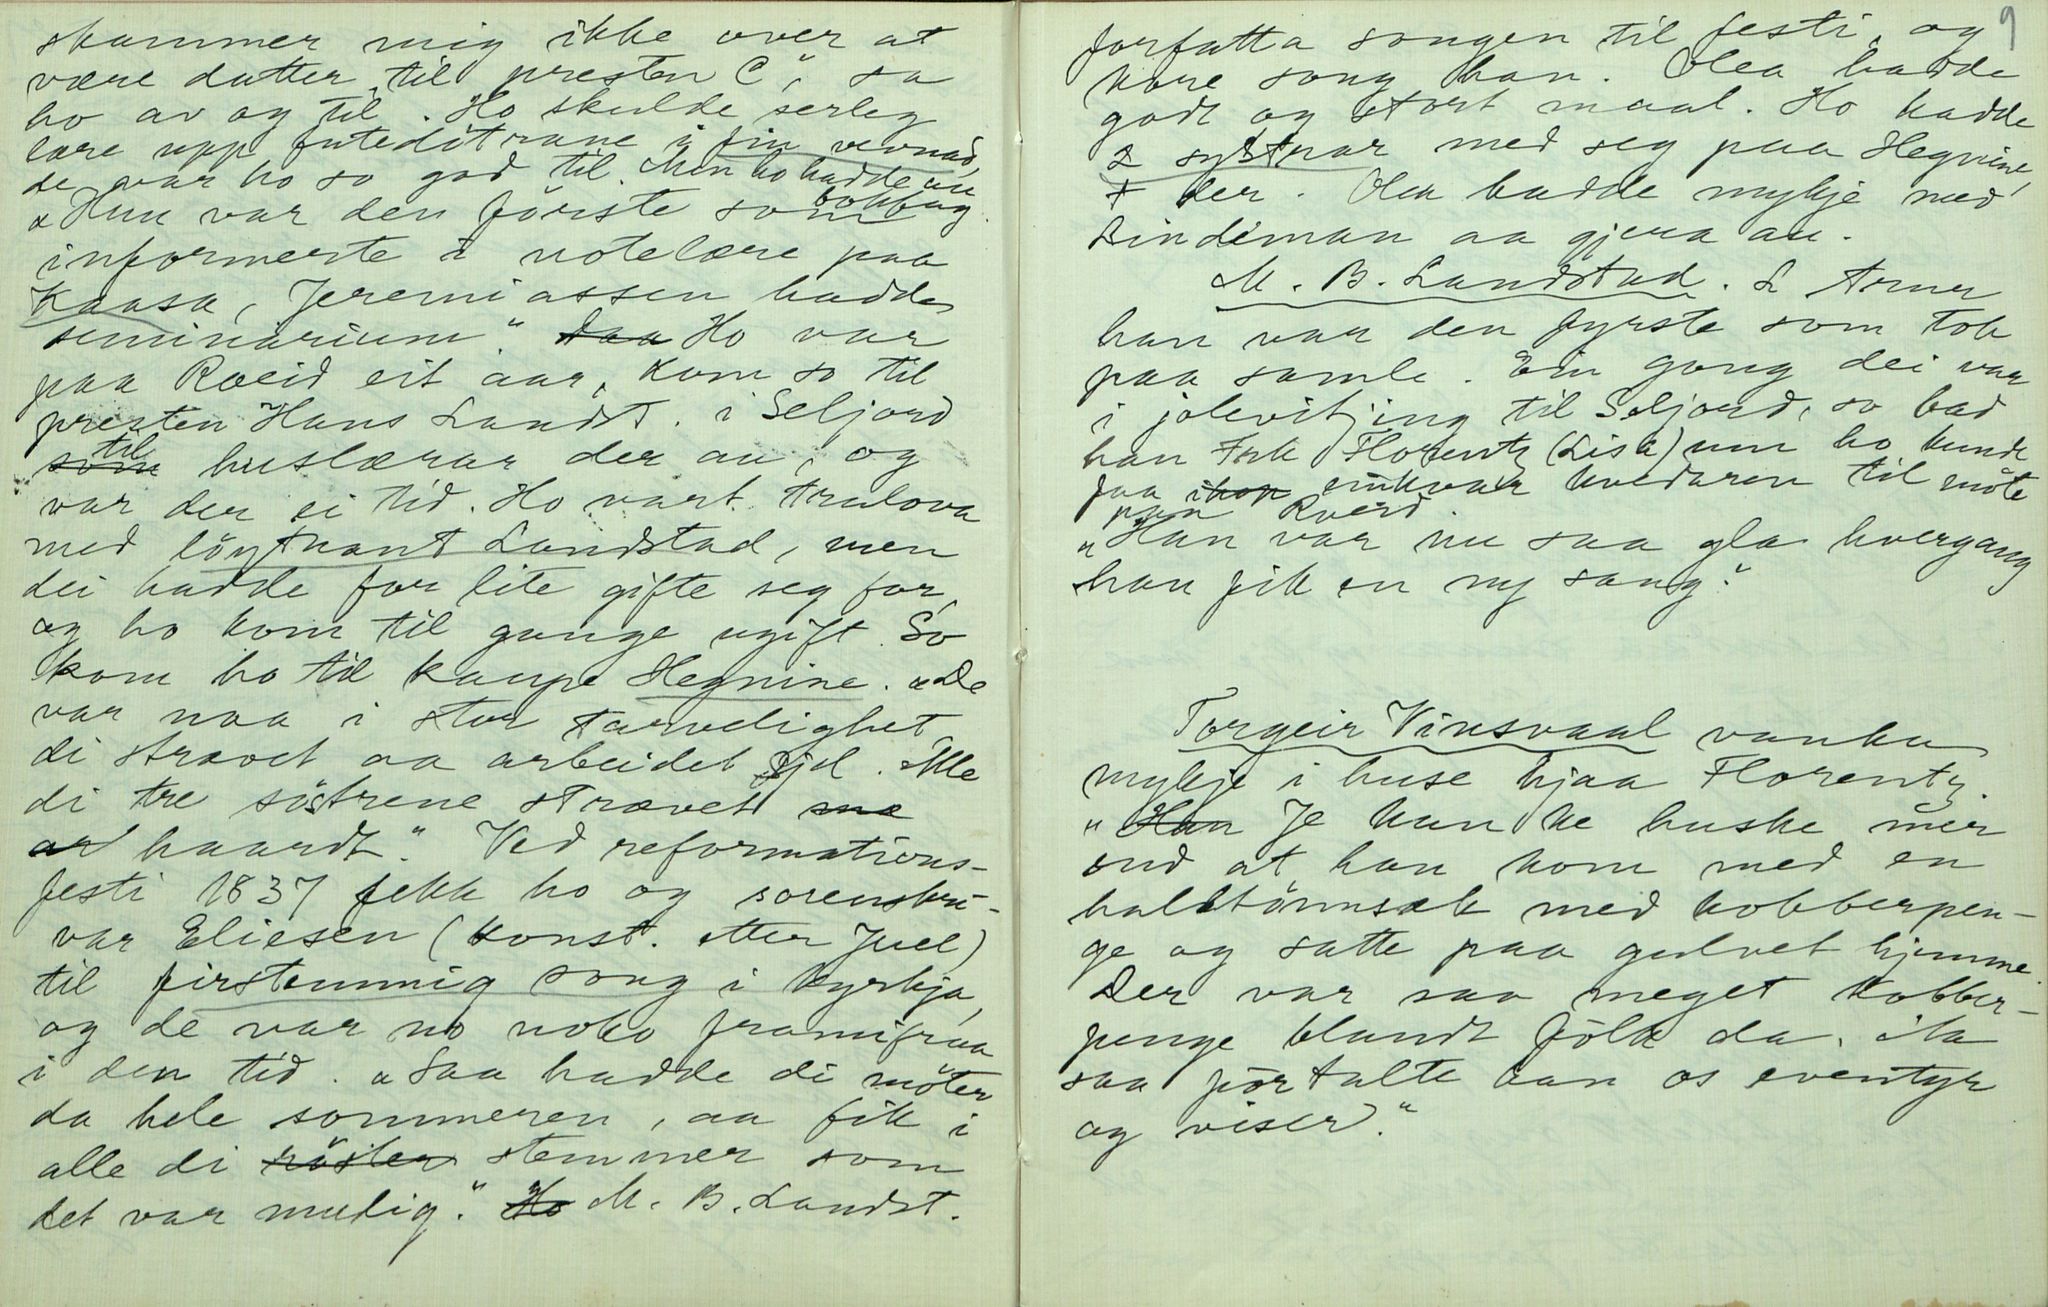 skammer mig ikke over at
være datter til presten C", sa
ho av og til. Ho skulde serleg
lære upp futedötrane i fin vevnad,
de var ho so god til. Men ho hadde au
bokbag.
"Hun var den förste som
informerte i notelære paa
Kaasa, Jeremiassen hadde
seminarium." Ho var
paa Roeid eit aar, kom so til
presten Hans Landst. i Seljord
til
som huslærar der au, og
var der ei tid. Ho vart trulova
med löytnant Landstad, men
dei hadde for lite gifte seg for,
og ho kom til gange ugift. So
kom ho til kaupe Hegnine. "De
var naa i stor tarvelighet,
di strævet aa arbeidet sjöl. Alle
di tre söstrene strævet
haardt." Ved reformations-
festi 1837 fekk ho og sorenskri-
var Eliesen (konst. etter Juel)
til firstemmig song i kyrkja,
og de var no noko framifraa
i den tid. "Saa hadde di möter
da hele sommeren, aa fik i
alle di röster stemmer som
det var mulig." Ho M. B. Landst.
9
forfatta songen til festi, og
kore song han. Olea hadde
godt og stort maal. Ho hadde
2 systrar med seg paa Hegnine,
der. Olea hadde mykje med
Lindeman aa gjera au.
M. B. Landstad.
han var den fyrste som tok
paa samle. Ein gong dei var
i jolevitjing til Seljord, so bad
han Frk Florentz (Lisa) um ho kunde
faa ihop einkvar kvedaren til möte
paa Roeid.
"Han var nu saa gla hvergang
han fik en ny sang."
Torgeir Vinsvaal vanka
mykje i huse hjaa Florentz.
"Han Je kan ke huske mer
end at han kom med en
halvtönnsæk med kobberpen-
ge og satte paa gulvet hjemme.
Der var saa meget kobber-
penge blandt fölk da.
saa fortalte han os eventyr
og viser."